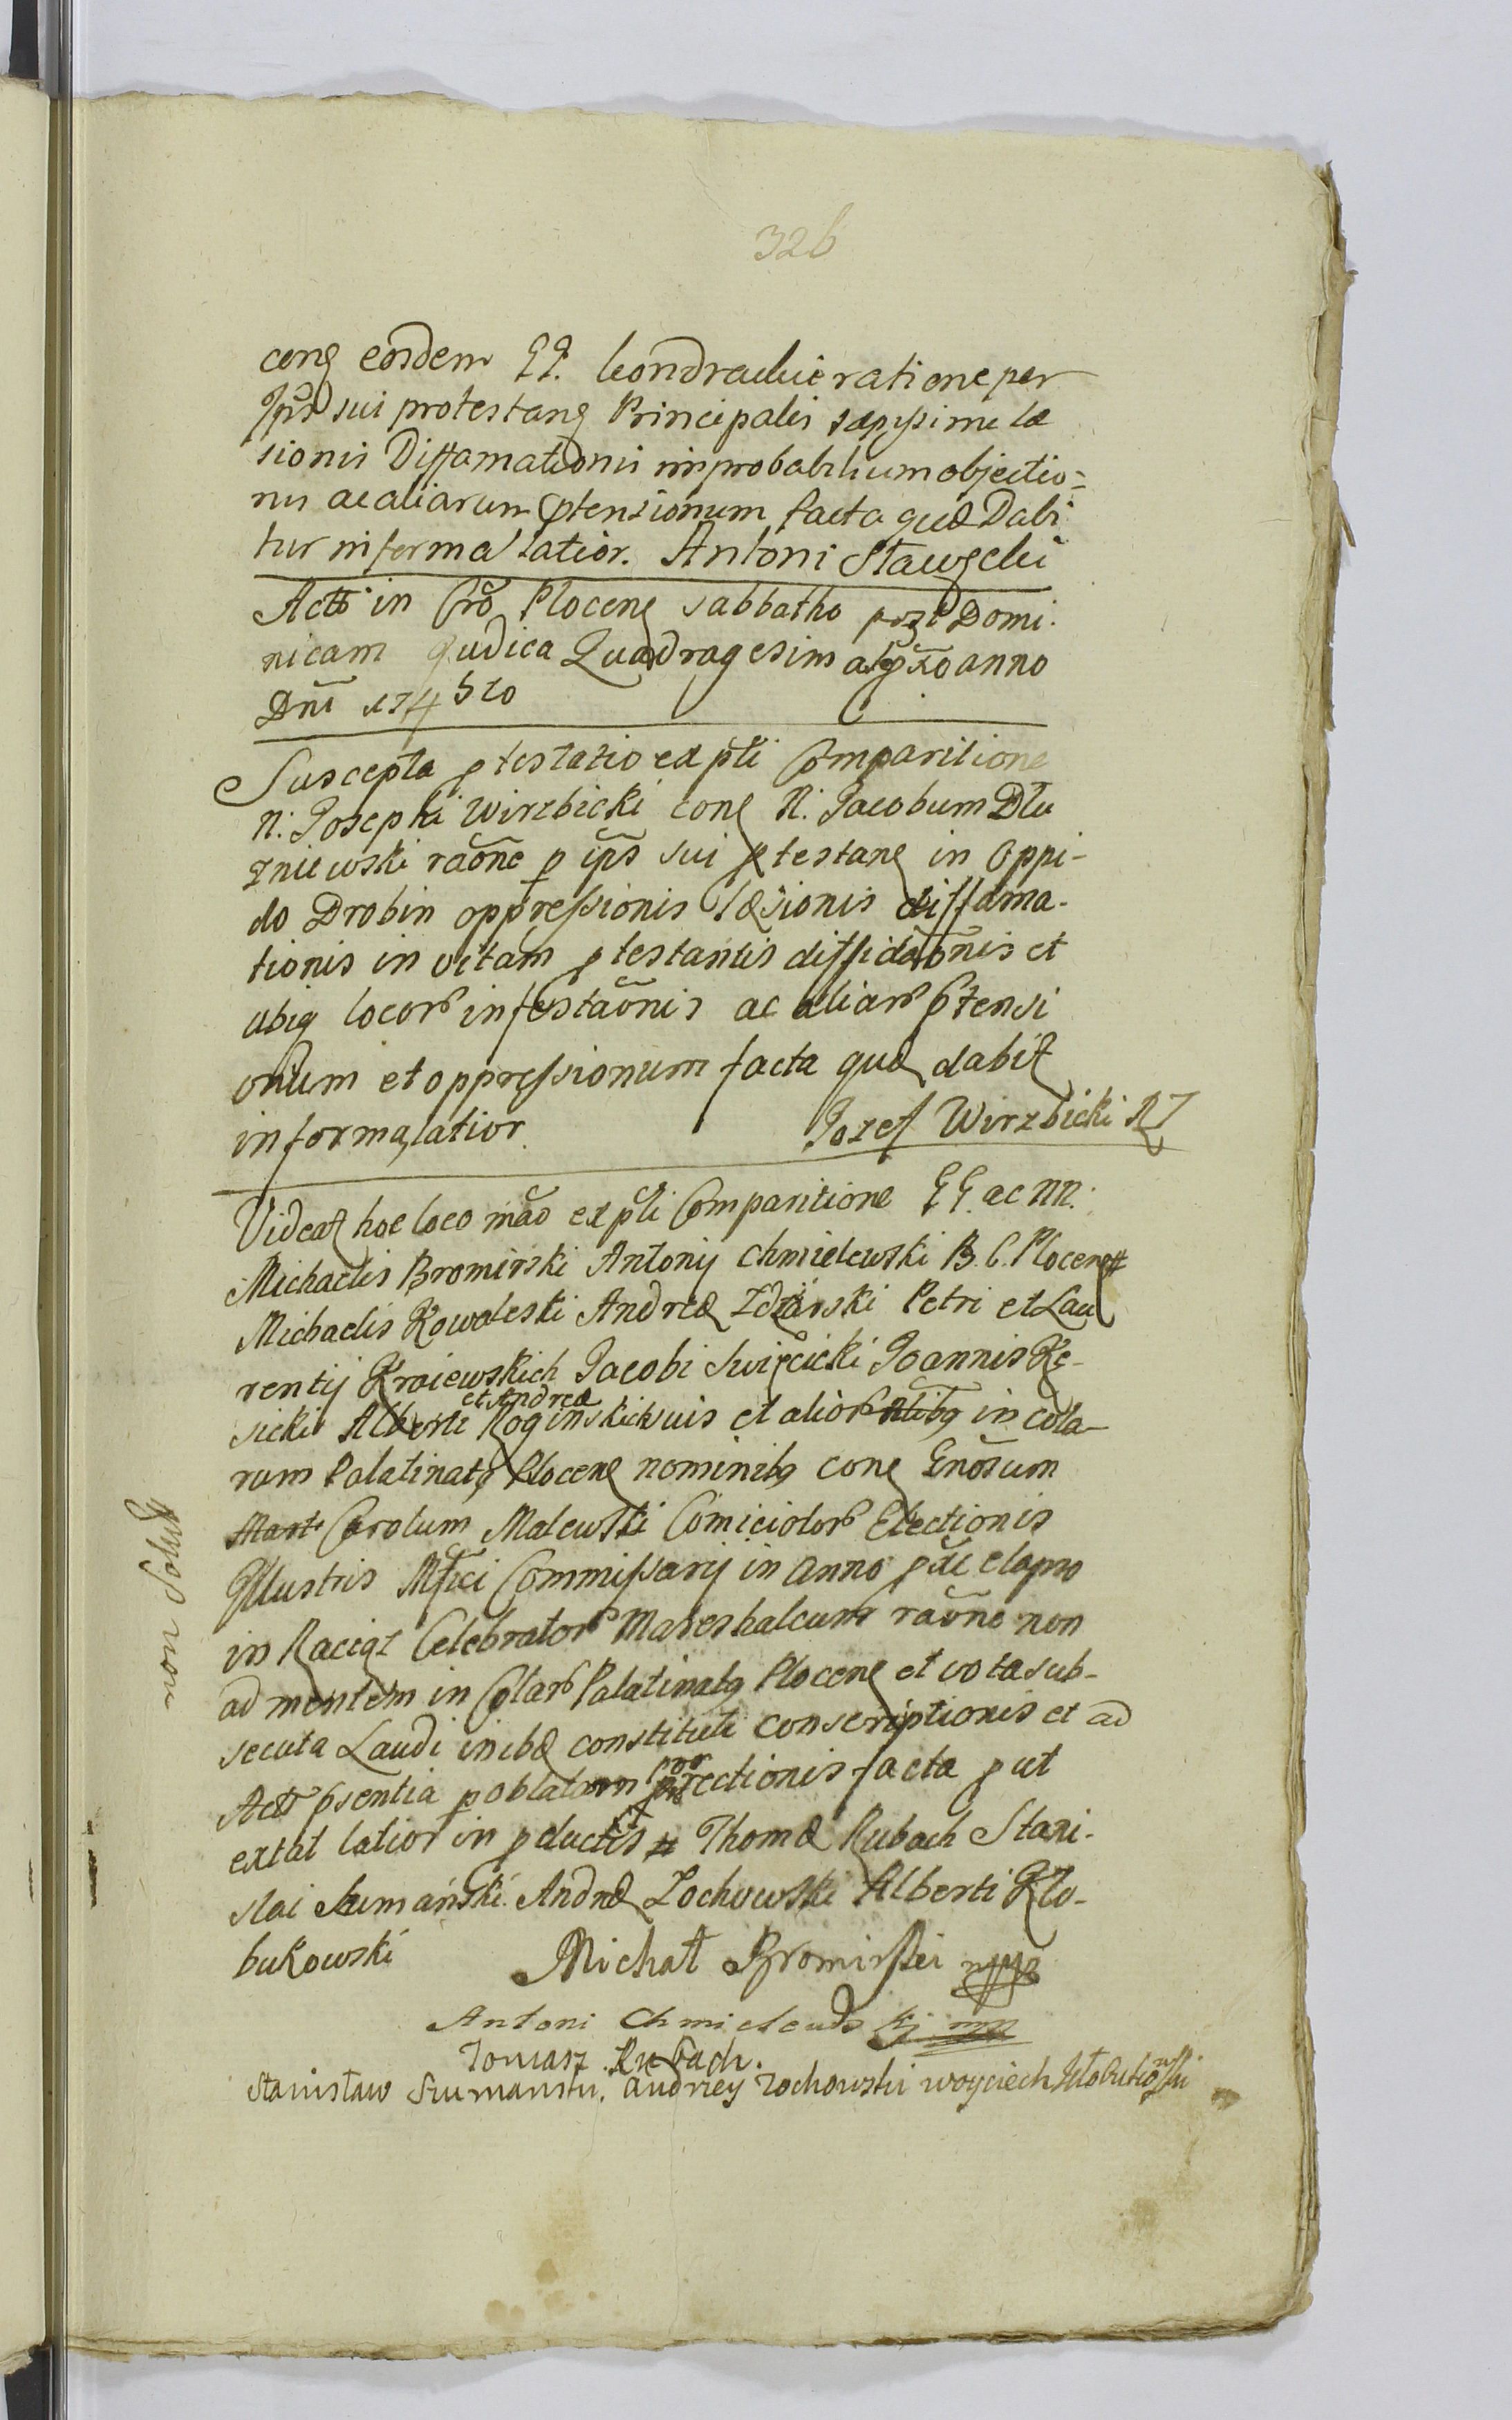 326
conq eosdem GG. Kondrackie ratione per
Ipsos sui protestanq Principalis sæpissime læ
sionis Diffamationis improbabilium objectio=
nis ac aliarum Ptensionum facta quæ Dabi
tur in forma latior. Antoni Stawscki
Actũ in Crõ Plocenq sabbatho post Domi-
nicam Judica Quadragesimalẽ prõ anno
Dni 1745to
Suscepta ptestatio ex psti Comparitione
N: Josephi Wirzbicki conq N. Jacobum Dłu
zniewski raõne p ips̃ sui ptestanq in Oppi-
do Drobin oppressionis læsionis diffama-
tionis in vitam ptestantis diffidaõnis et
ubiq locorũ infestaõnis ac aliarũ Ptensi
onum et oppressionum facta quæ dabit
in forma latior. Jozef Wirzbicki
Videat hoc loco mãõ ex psti Comparitione GG. ac NN.
Michaelis Bromirski Antonij Chmielewski B. C. Plocen
Michaelis Kowaleski Andreæ Zdżarski Petri et Lau
rentij Kraiewskich Jacobi Swięcicki Joannis Kę-
sicki Alberti et Andreæ Roginskich suis et aliorũ in cola-
rum Palatinatq Plocenq nominibq conq Gnõsum
Carolum Malewski Comiciolorũ Electionis
Illustris Mfici Commissarij in anno pxie elapso
in Raciąz Celebratorũ Mareshalcum raõne non
ad mentem in Colarũ Palatinatq Plocenq et vota sub-
secuta Laudi inibæ constituti conscriptionis et ad
Actũ psentia p oblatam porrectionis facta put
extat latior in pductis Thomæ Rubach Stani-
slai Szumański Andreæ Zochowski Alberti Kło-
bukowski Michał Bromirski mpp
Antoni Chmielewski mp
Tomasz Rubach.
Stanisław Szumanski. Andrzey Zochowski woyciech Kłobukowski
non Solut